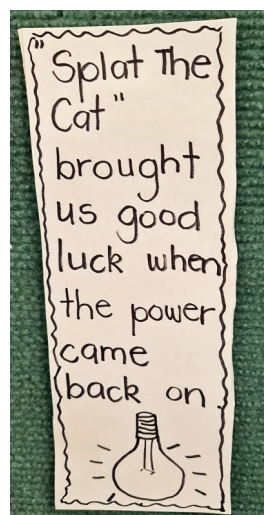 "Splat The
Cat"
brought
us good
luck when
the power
came
back on.